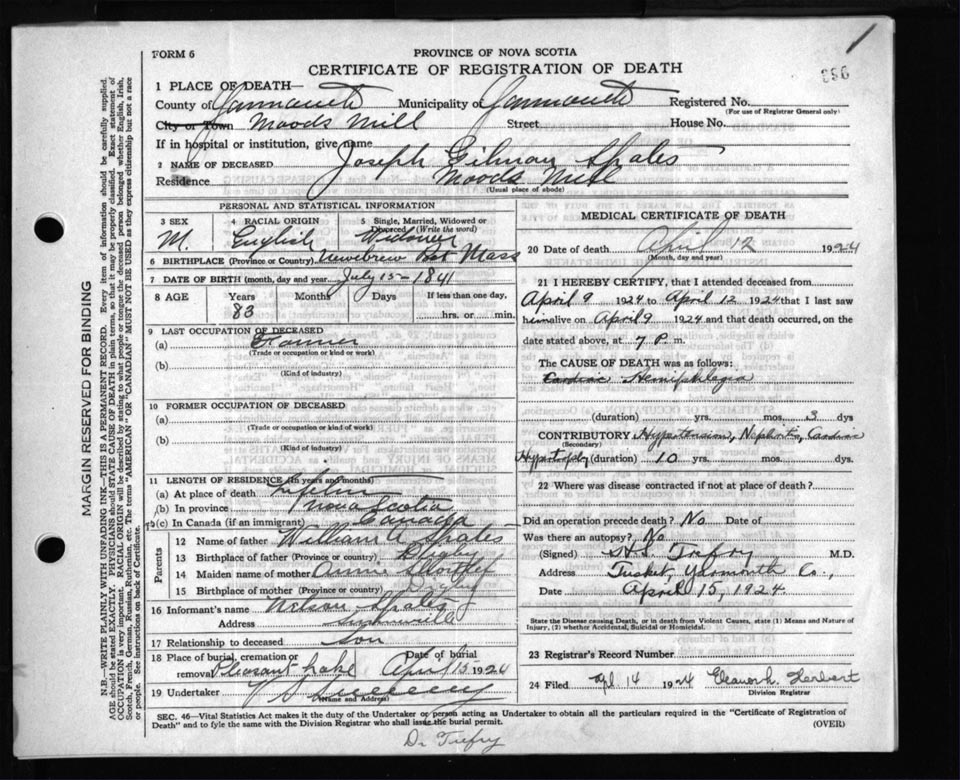 FORM 6
PROVINCE OF NOVA SCOTIA
CERTIFICATE OF REGISTRATION OF DEATH
1 PLACE OF DEATH—
County of Yarmouth Municipality of Yarmouth Registered No.
(For use of Registrar General only)
City or Town Moods Mill Street House No.
If in hospital or institution, give name
2 NAME OF DECEASED Joseph Gilman Spates
Residence Moods Mill
(Usual place of abode)
PERSONAL AND STATISTICAL INFORMATION
3 SEX 4 RACIAL ORIGIN 5 Single, Married, Widowed or Divorced (Write the word)
M. English Widower
6 BIRTHPLACE (Province or Country) Mass
7 DATE OF BIRTH (month, day and year) July 15 - 1841
8 AGE Years Months Days If less than one day,
83 hrs. or min.
9 LAST OCCUPATION OF DECEASED
(a)
(Trade or occupation or kind or work)
(b)
(Kind of industry)
10 FORMER OCCUPATION OF DECEASED
(a)
(Trade or occupation or kind or work)
(b)
(Kind of industry)
11 LENGTH OF RESIDENCE (in years and months)
(a) At place of death
(b) In province Nova Scotia
(c) In Canada (if an immigrant) Canada
Parents
12 Name of father William A Spates
13 Birthplace of father (Province or country) Digby
14 Maiden name of mother Annie
15 Birthplace of mother (Province or country)
16 Informant's name Nelson Spates
Address
17 Relationship to deceased Son
18 Place of burial, cremation or removal Pleasant Lake Date of burial April 15 1924
19 Undertaker
(Name and Address)
MEDICAL CERTIFICATE OF DEATH
20 Date of death April 12 1924
(Month, day and year)
21 I HEREBY CERTIFY, that I attended deceased from
April 9 1924 to April 12 1924 that I last saw
him alive on April 9 1924 and that death occurred, on the
date stated above, at 7 P. m.
The CAUSE OF DEATH was as follows:
Cardiac Hemiphlegia
(duration) yrs. mos. 3 dys
CONTRIBUTORY Hypertension, Nephritis, Cardiac
(Secondary)
Hypertrophy (duration) 10 yrs. mos. dys.
22 Where was disease contracted if not at place of death?
Did an operation precede death? No Date of
Was there an autopsy? No
(Signed) Trefry M.D.
Address Tusket, Yarmouth Co.,
Date April 15, 1924.
State the Disease causing Death, or in death from Violent Causes, state (1) Means and Nature of Injury, (2) whether Accidental, Suicidal or Homicidal.
23 Registrar's Record Number
24 Filed Apl 14 1924 Eleanor h. Herbert
Division Registrar
SEC. 46—Vital Statistics Act makes it the duty of the Undertaker or person acting as Undertaker to obtain all the particulars required in the "Certificate of Registration of
Death" and to fyle the same with the Division Registrar who shall issue the burial permit. (OVER)
Dr Trefry
MARGIN RESERVED FOR BINDING
N.B.—WRITE PLAINLY WITH UNFADING INK—THIS IS A PERMANENT RECORD. Every item of information should be carefully supplied.
AGE should be stated EXACTLY. PHYSICIANS should STATE CAUSE OF DEATH in plain terms, so that it may be properly classified. Exact statement of
OCCUPATION is very important. RACIAL ORIGIN will be described by stating to what people or tongue the deceased person belonged whether English, Irish,
Scotch, French, German, Russian, Ruthenian, etc. The terms "AMERICAN" or "CANADIAN" MUST NOT BE USED as they express citizenship but not a race
or people. See instructions on back of Certificate.